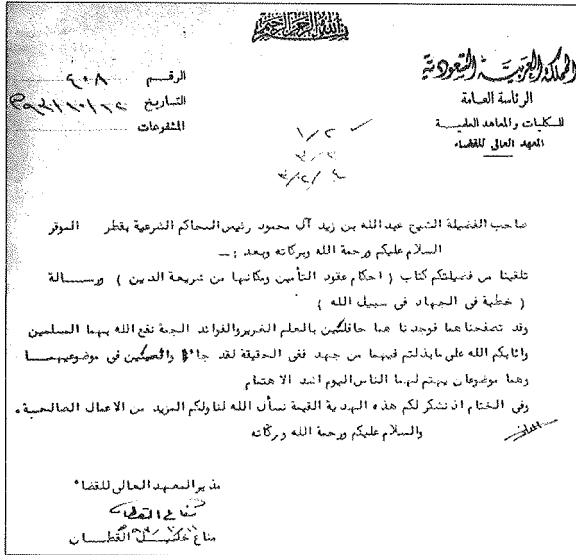 بسم الله الرحمن الرحيم
المملكة العربية السعودية
الرئاسة العامة
للكليات والمعاهد العلمية
المعهد العالي للقضاء
الرقم ٩٠٨
التاريخ
المشفوعات
١/٢
٣/٢
صاحب الفضيلة الشيخ عبد الله بن زيد آل محمود رئيس المحاكم الشرعية بقطر الموقر
السلام عليكم ورحمة الله وبركاته وبعد :ــ
تلقينا من فضيلتكم كتاب ( احكام عقود التأمين ومكانها من شريعة الدين ) ورسالة
( خطبة فى الجهاد فى سبيل الله )
وقد تصفحناهما فوجدناهما حافلتين بالعلم الغزير والفوائد الجمة نفع الله بهما المسلمين
واثابكم الله على مابذلتم فيهما من جهد ففى الحقيقة لقد جائا فى موضوعيهما
وهما موضوعان يهتم لهما الناس اليوم اشد الاهتمام
وفى الختام اذ نشكر لكم هذه الهدية القيمة نسأل الله لنا ولكم المزيد من الاعمال الصالحة .
والسلام عليكم ورحمة الله وبركاته
مدير المعهد العالى للقضاء
مناع خليل القطان